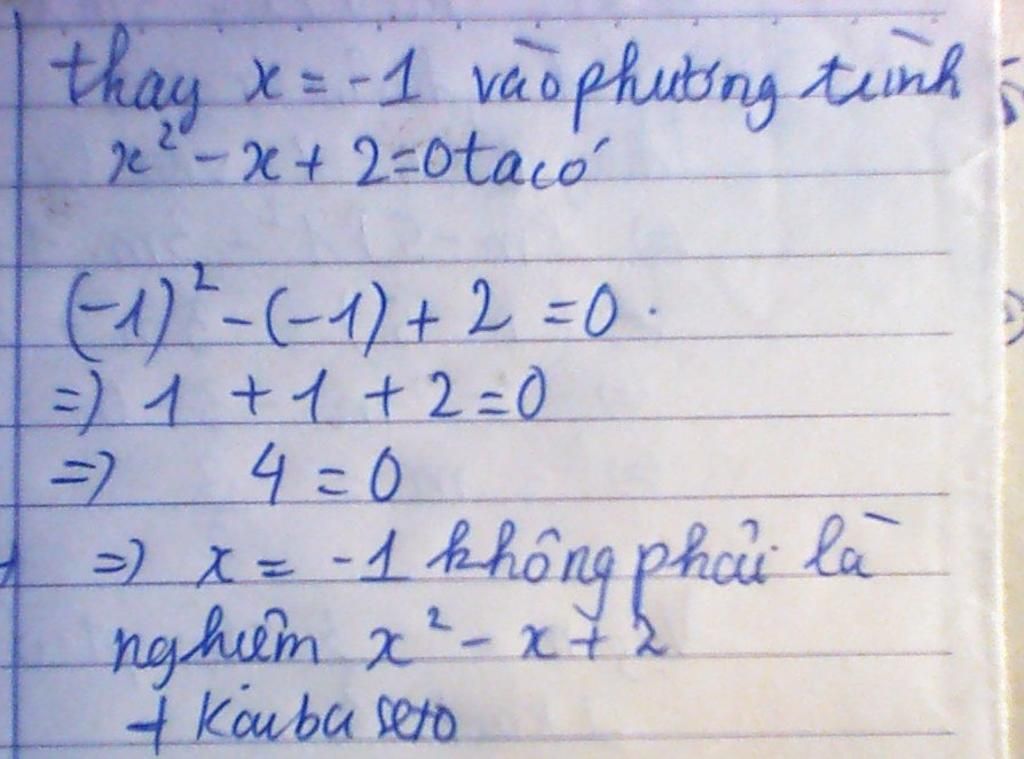 thay x = -1 vào phương trình
x² - x + 2 = 0 ta có
(-1)² - (-1) + 2 = 0.
=) 1 + 1 + 2 = 0
=) 4 = 0
=) x = -1 không phải là
nghiệm x² - x + 2
+ Kaiba seto